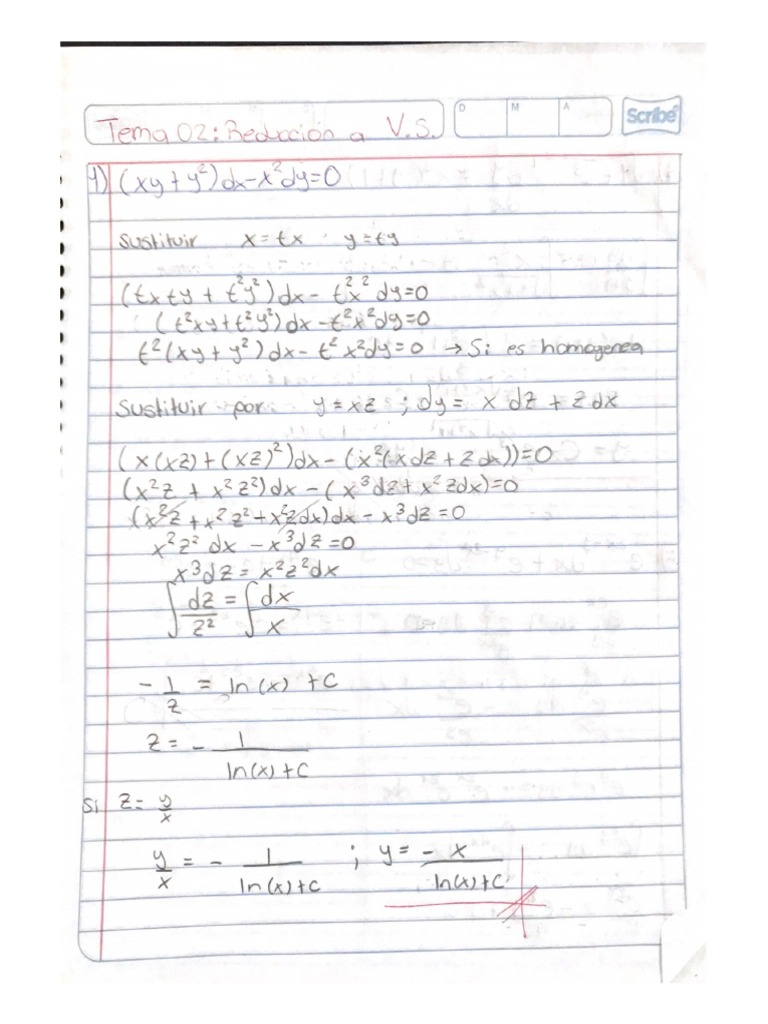 Tema 02: Reducción a V.S.
D M A
Scribe
1) (xy + y²)dx - x²dy = 0
Sustituir x = tx y = ty
(tx ty + t²y²)dx - t²x² dy = 0
(t²xy + t²y²)dx - t²x²dy = 0
t²(xy + y²)dx - t²x²dy = 0 → Si es homogenea
Sustituir por y = xz ; dy = x dz + z dx
(x(xz) + (xz)²)dx - (x²(x dz + z dx)) = 0
(x²z + x²z²)dx - (x³dz + x²zdx) = 0
(x²z + x²z² + x²zdx)dx - x³dz = 0
x²z² dx - x³dz = 0
x³dz = x²z²dx
∫ dz/z² = ∫ dx/x
- 1/z = ln(x) + C
z = - 1/(ln(x) + C)
Si z = y/x
y/x = - 1/(ln(x) + C) ; y = - x/(ln(x) + C)